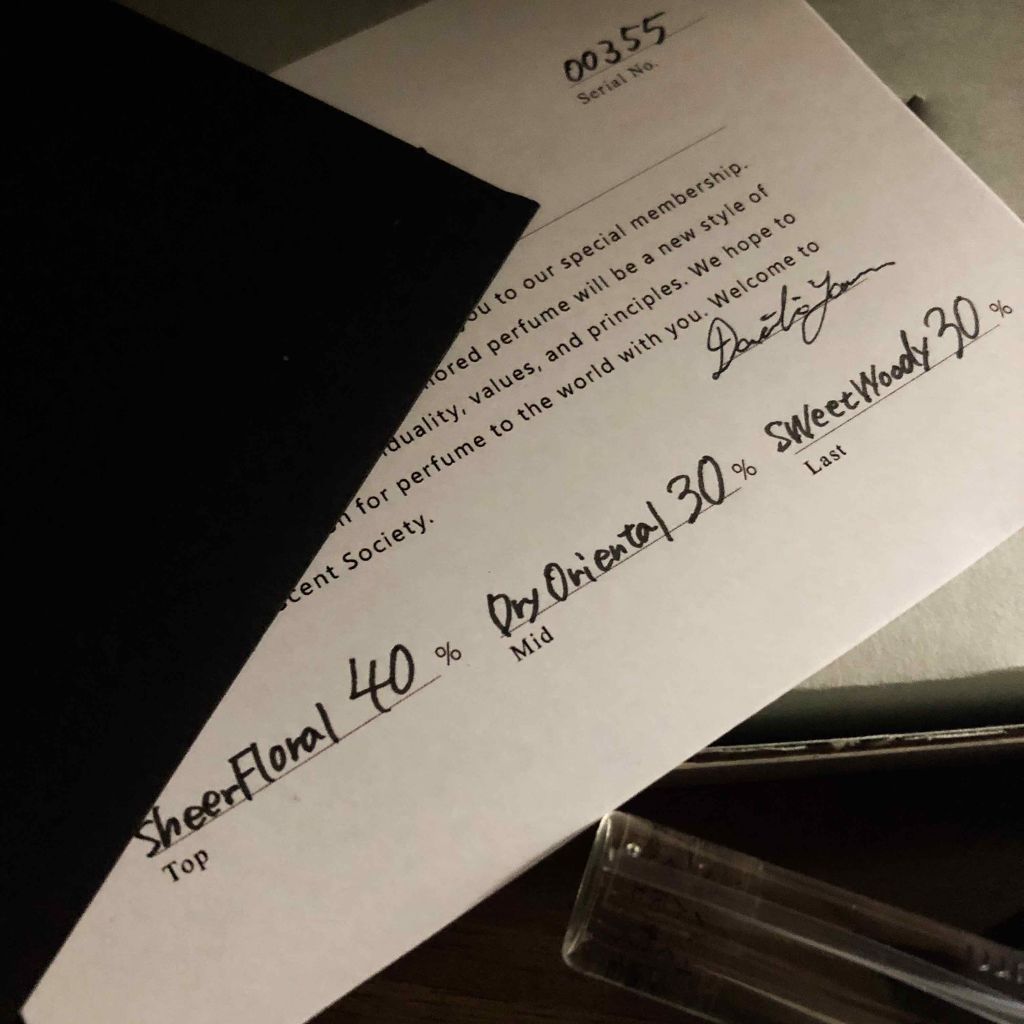 00355
Serial No.
to our special membership.
perfume will be a new style of
values, and principles. We hope to
for perfume to the world with you. Welcome to
Society.
SheerFloral 40 %
Top
Dry Oriental 30 %
Mid
Sweet Woody 30 %
Last